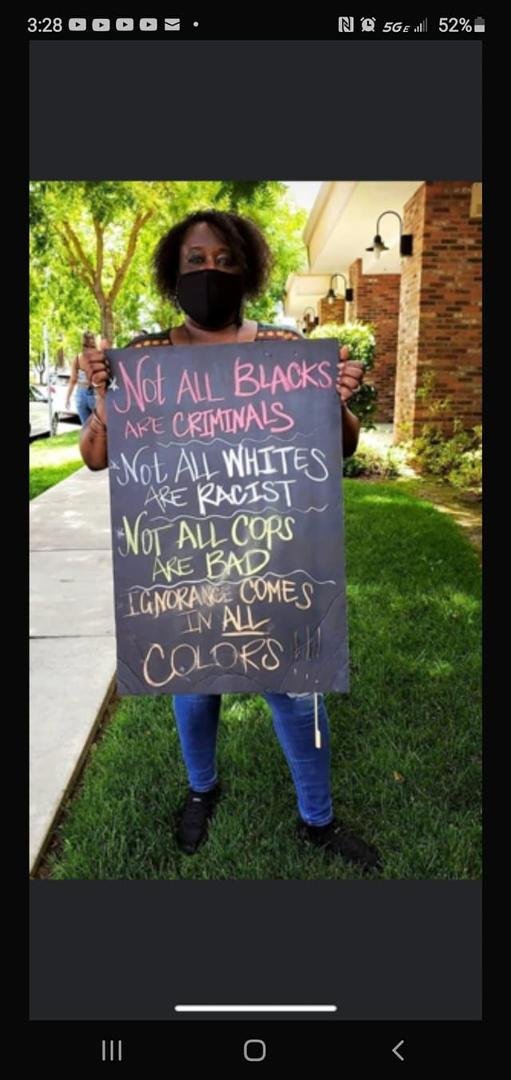 3:28
5GE
52%
*Not ALL BLACKS
ARE CRIMINALS
*Not ALL WHITES
ARE RACIST
*NOT ALL COPS
ARE BAD
IGNORANCE COMES
IN ALL
COLORS !!!